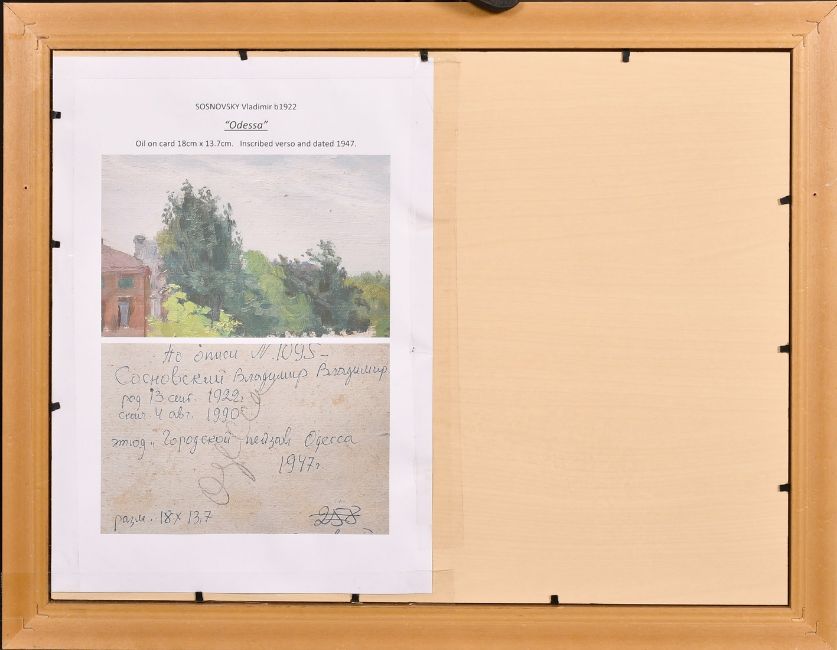 SOSNOVSKY Vladimir b1922
"Odessa"
Oil on card 18cm x 13.7cm. Inscribed verso and dated 1947.
По описи N. 1095-
Сосновский Владимир Владимир
род 13 сент. 1922г
4 авг. 1990
этюд „Городской пейзаж Одесса
1947г
Одесса
разм. 18 х 13,7
258